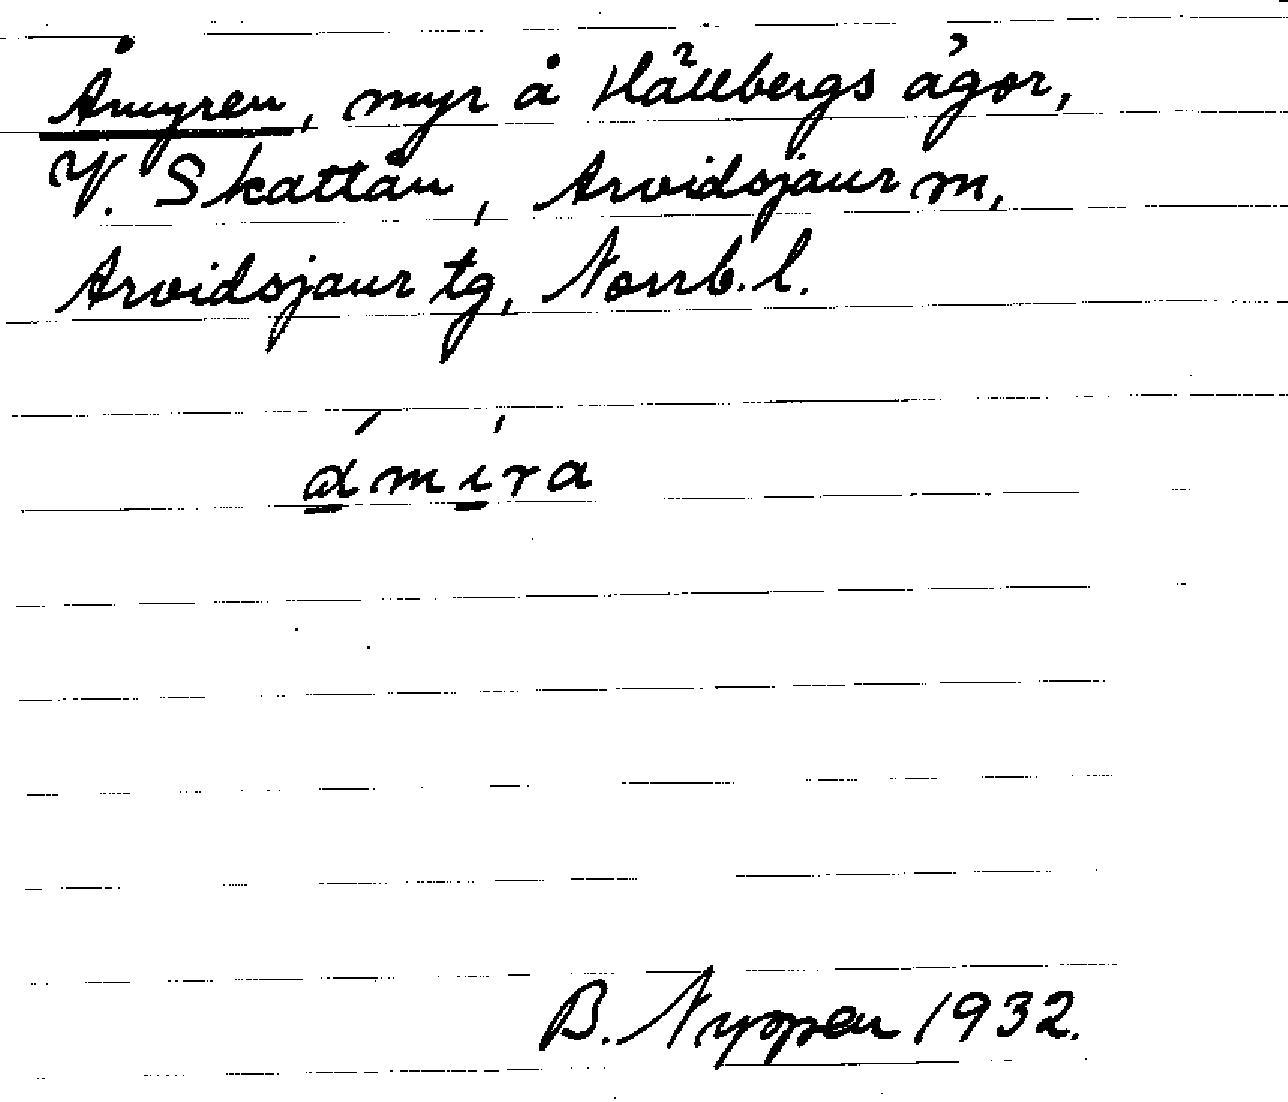 Åmyren, myr å Hällbergs ägor,
V. Skattån, Arvidsjaur m,
Arvidsjaur tg, Norrb. l.
ámíra
B. Nyppen 1932.